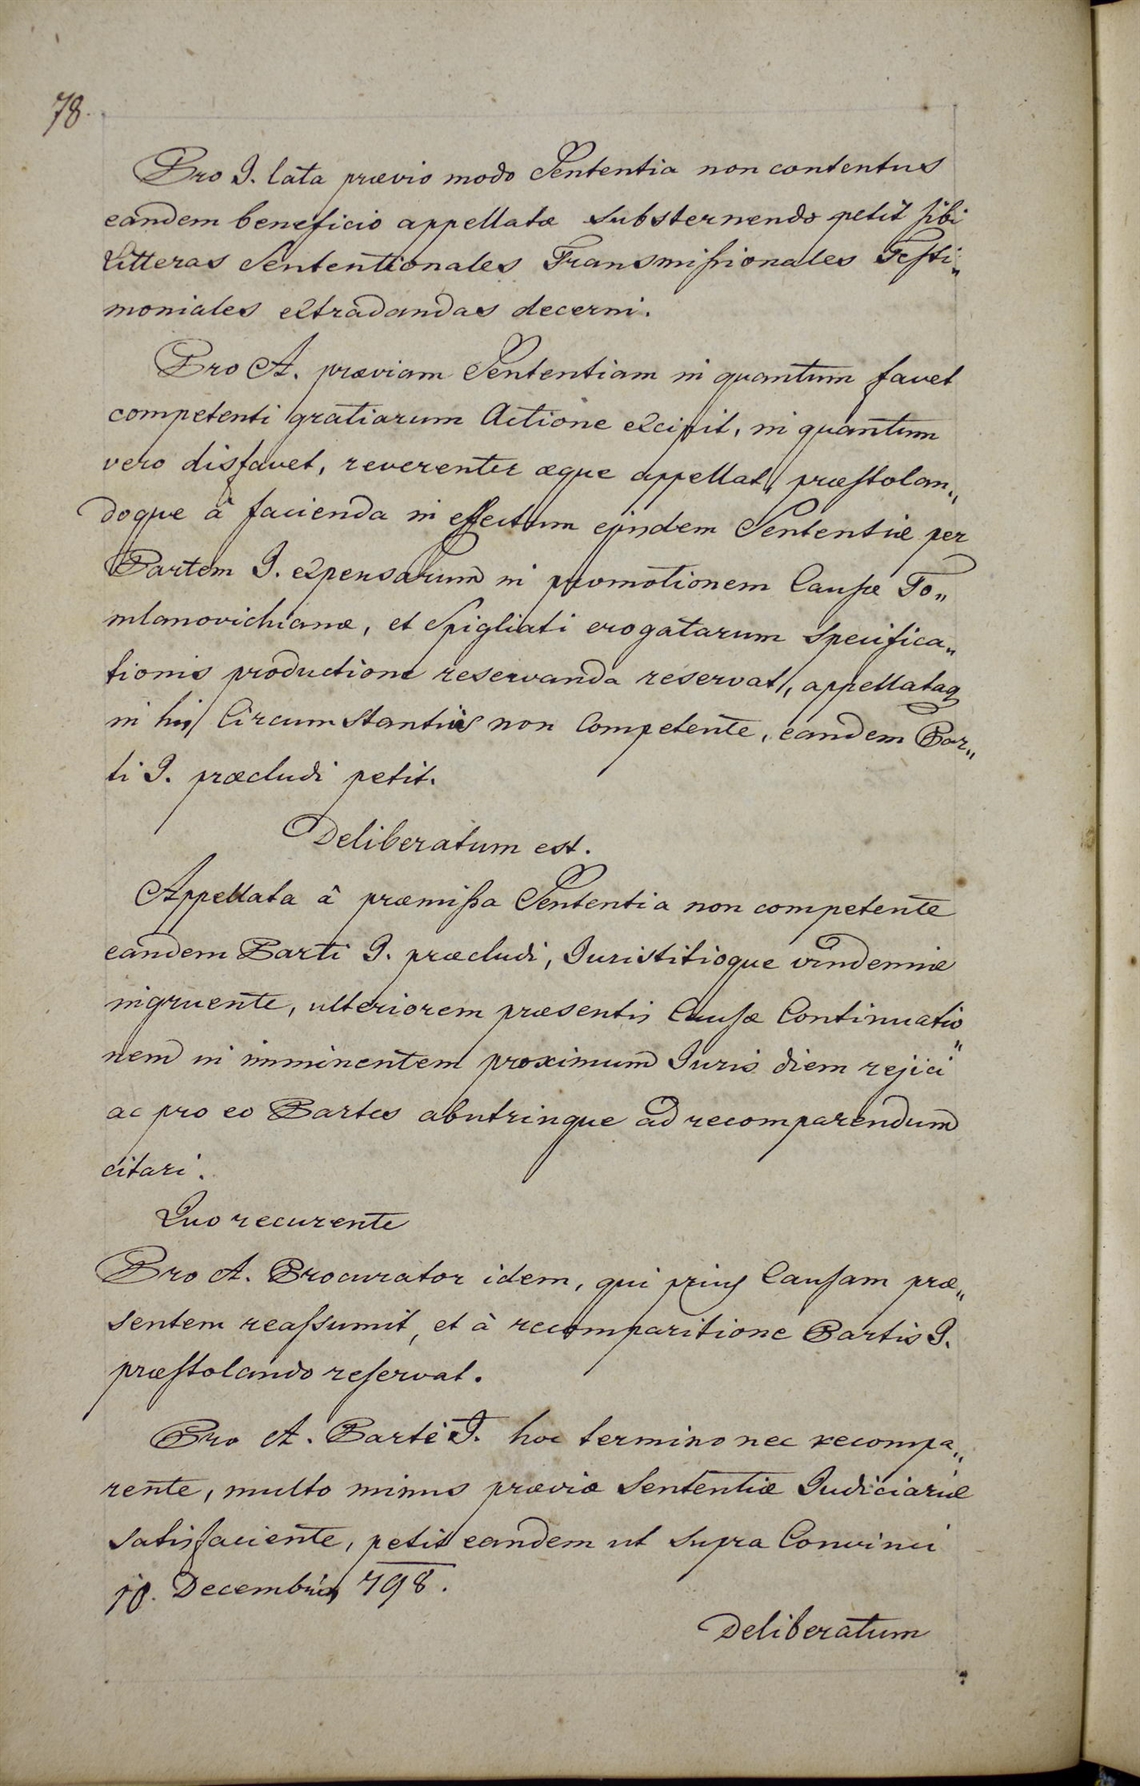 78.
Pro I. lata prævio modo Sententia non contentus
eandem beneficio appellatæ substernendo petit sibi
Litteras Sententionales Transmissionales Testi„
moniales extradandas decerni.
Pro A. præviam Sententiam in quantum favet
competenti gratiarum Actione excipit, in quantum
vero disfavet, reverenter æque appellat, præstolan„
doque â facienda in effectum ejusdem Sententiæ per
Partem I. expensarum in promotionem Causæ To„
mlanovichianæ, et Spigliati erogatarum specifica„
tionis productione reservanda reservat, appellataq
in his Circumstantiis non Competente, eandem Par„
ti I. præcludi petit.
Deliberatum est.
Appellata â præmissa Sententia non competente
eandem Parti I. præcludi, Juristitioque vindemiæ
ingruente, ulteriorem præsentis Causæ Continuatio„
nem in imminentem proximum Juris diem rejici
ac pro eo Partes abutrinque ad recomparendum
citari.
Quo recurente
Pro A. Procurator idem, qui prius Causam præ„
sentem reassumit, et à recomparitione Partis I.
præstolando reservat.
Pro A. Parte I. hoc termino nec recompa„
rente, multo minus præviæ Sententiæ Judiciariæ
satisfaciente, petit eandem ut supra Convinci
10. Decembris 798.
Deliberatum